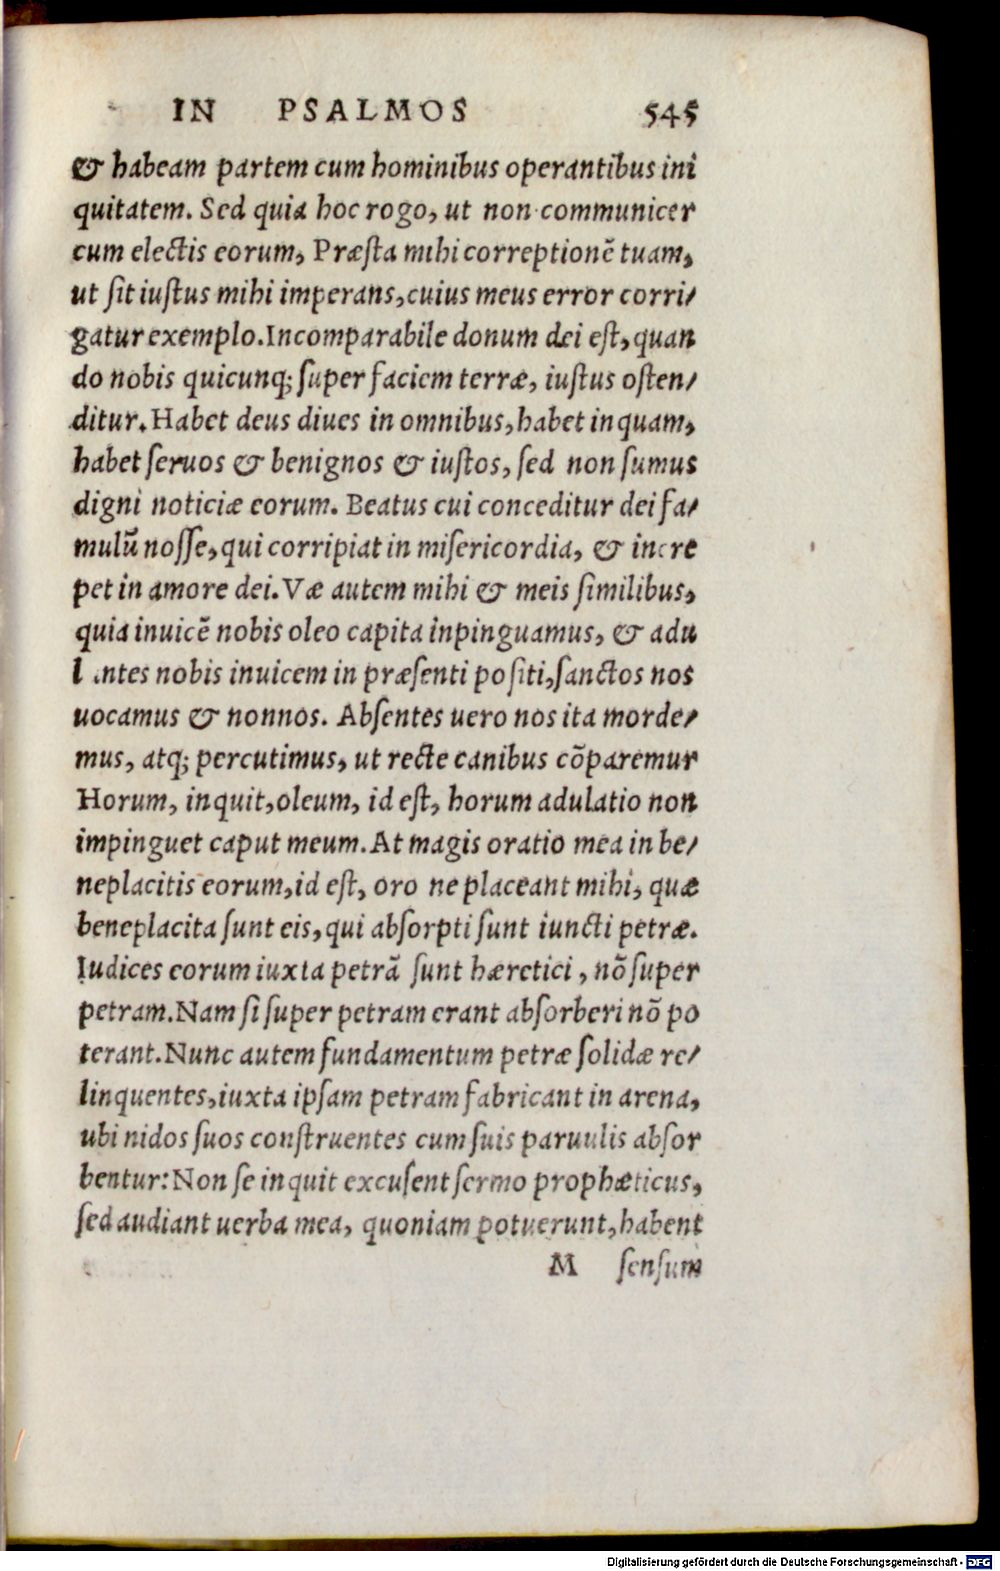 IN PSALMOS 545
& habeam partem cum hominibus operantibus ini
quitatem. Sed quia hoc rogo, ut non communicer
cum electis eorum, Præſta mihi correptionē tuam,
ut ſit iuſtus mihi imperans, cuius meus error corri/
gatur exemplo. Incomparabile donum dei eſt, quan
do nobis quicunq; ſuper faciem terræ, iuſtus oſten/
ditur. Habet deus diues in omnibus, habet inquam,
habet ſeruos & benignos & iuſtos, ſed non ſumus
digni noticiæ eorum. Beatus cui conceditur dei fa/
mulū noſſe, qui corripiat in miſericordia, & incre
pet in amore dei. Væ autem mihi & meis ſimilibus,
quia inuicē nobis oleo capita inpinguamus, & adu
lantes nobis inuicem in præſenti poſiti, ſanctos nos
uocamus & nonnos. Abſentes uero nos ita morde/
mus, atq; percutimus, ut recte canibus cōparemur
Horum, inquit, oleum, id eſt, horum adulatio non
impinguet caput meum. At magis oratio mea in be/
neplacitis eorum, id eſt, oro ne placeant mihi, quæ
beneplacita ſunt eis, qui abſorpti ſunt iuncti petræ.
Iudices eorum iuxta petrā ſunt hæretici, nō ſuper
petram. Nam ſi ſuper petram erant abſorberi nō po
terant. Nunc autem fundamentum petræ ſolidæ re/
linquentes, iuxta ipſam petram fabricant in arena,
ubi nidos ſuos conſtruentes cum ſuis paruulis abſor
bentur: Non ſe inquit excuſent ſermo prophæticus,
ſed audiant uerba mea, quoniam potuerunt, habent
M ſenſum
Digitalisierung gefördert durch die Deutsche Forschungsgemeinschaft - DFG